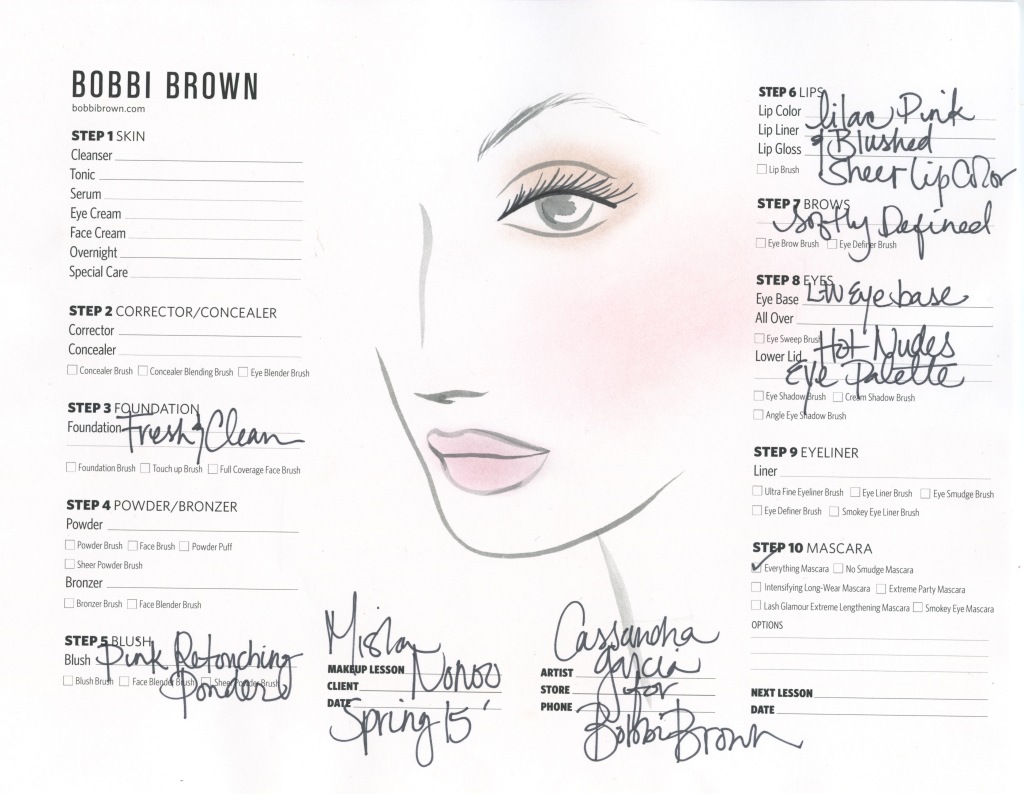 BOBBI BROWN
bobbibrown.com
STEP 1 SKIN
Cleanser
Tonic
Serum
Eye Cream
Face Cream
Overnight
Special Care
STEP 2 CORRECTOR/CONCEALER
Corrector
Concealer
Concealer Brush Concealer Blending Brush Eye Blender Brush
STEP 3 FOUNDATION
Foundation Fresh & Clean
Foundation Brush Touch up Brush Full Coverage Face Brush
STEP 4 POWDER/BRONZER
Powder
Powder Brush Face Brush Powder Puff
Sheer Powder Brush
Bronzer
Bronzer Brush Face Blender Brush
STEP 5 BLUSH
Blush Pink Retouching
Powder
Blush Brush Face Blender Brush Sheer Powder Brush
Misha
Nonoo
MAKEUP LESSON
CLIENT
DATE
Spring 15'
Cassandra
Garcia
for
Bobbi Brown
ARTIST
STORE
PHONE
STEP 6 LIPS
Lip Color Lilac Pink
Lip Liner & Blushed
Lip Gloss Sheer Lip Color
Lip Brush
STEP 7 BROWS
Softly Defined
Eye Brow Brush Eye Definer Brush
STEP 8 EYES
Eye Base LW Eye base
All Over
Eye Sweep Brush
Lower Lid Hot Nudes
Eye Palette
Eye Shadow Brush Cream Shadow Brush
Angle Eye Shadow Brush
STEP 9 EYELINER
Liner
Ultra Fine Eyeliner Brush Eye Liner Brush Eye Smudge Brush
Eye Definer Brush Smokey Eye Liner Brush
STEP 10 MASCARA
Everything Mascara No Smudge Mascara
Intensifying Long-Wear Mascara Extreme Party Mascara
Lash Glamour Extreme Lengthening Mascara Smokey Eye Mascara
OPTIONS
NEXT LESSON
DATE